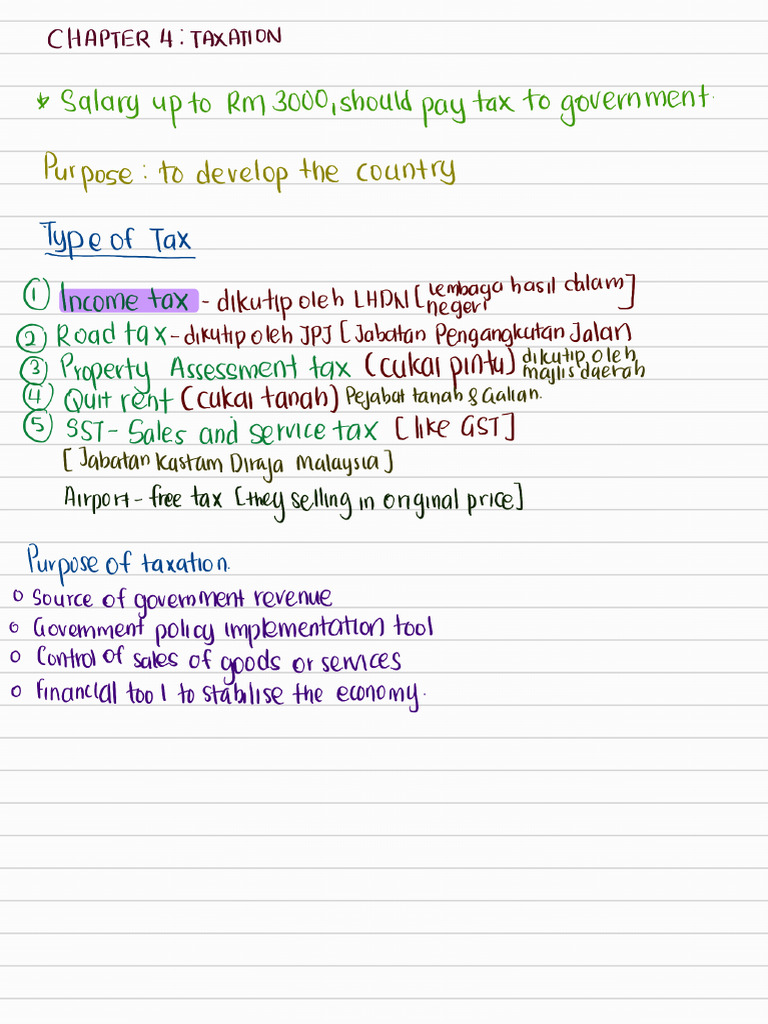 CHAPTER 4: TAXATION
* Salary up to RM 3000, should pay tax to government.
Purpose: to develop the country
Type of Tax
① Income tax - dikutip oleh LHDN [lembaga hasil dalam negeri]
② Road tax - dikutip oleh JPJ [Jabatan Pengangkutan Jalan
③ Property Assessment tax (cukai pintu) dikutip oleh majlis daerah
④ Quit rent (cukai tanah) Pejabat tanah & Galian.
⑤ SST - Sales and service tax [like GST]
[Jabatan Kastam Diraja Malaysia]
Airport - free tax [they selling in original price]
Purpose of taxation.
o Source of government revenue
o Government policy implementation tool
o Control of sales of goods or services
o Financial tool to stabilise the economy.